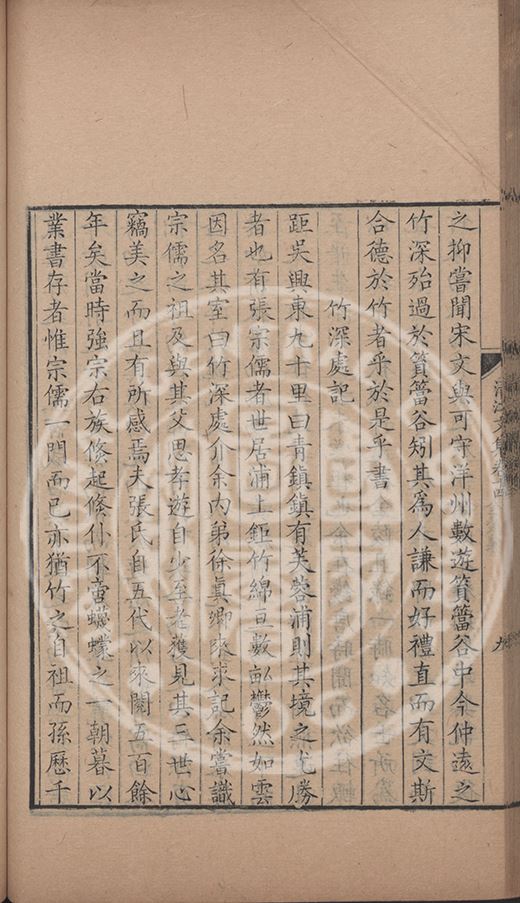 之抑嘗聞宋文與可守洋州數遊篔簹谷中今仲遠之
竹深殆過於篔簹谷矧其為人謙而好禮直而有文斯
合德於竹者乎於是乎書
竹深處記
距吳興東九十里曰青鎮鎮有芙蓉浦則其境之尤勝
者也有張宗儒者世居浦上鉅竹綿亘數畝鬱然如雲
因名其室曰竹深處介余内弟徐眞卿來求記余嘗識
宗儒之祖及與其父思孝遊自少至老獲見其三世心
竊美之而且有所感焉夫張氏自五代以來閱五百餘
年矣當時強宗右族倐起倐仆不啻蠛蠓之一朝暮以
業書存者惟宗儒一門而已亦猶竹之自祖而孫歷千